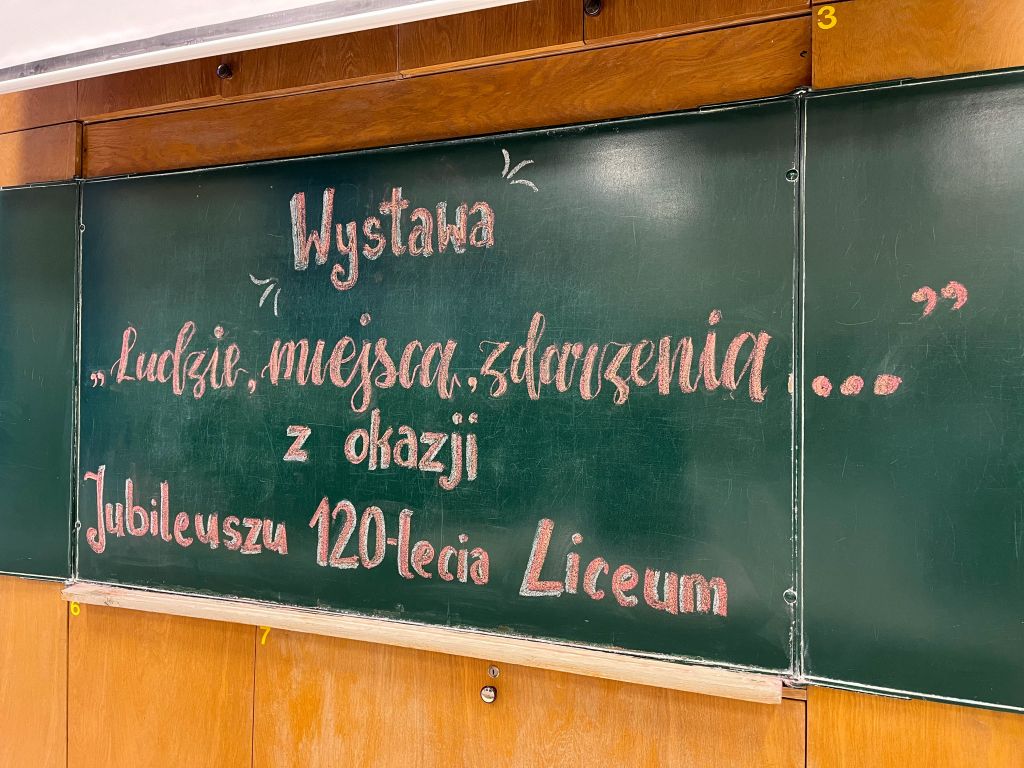 3
Wystawa
„Ludzie, miejsca, zdarzenia ..."
z okazji
Jubileuszu 120-lecia Liceum
6
7